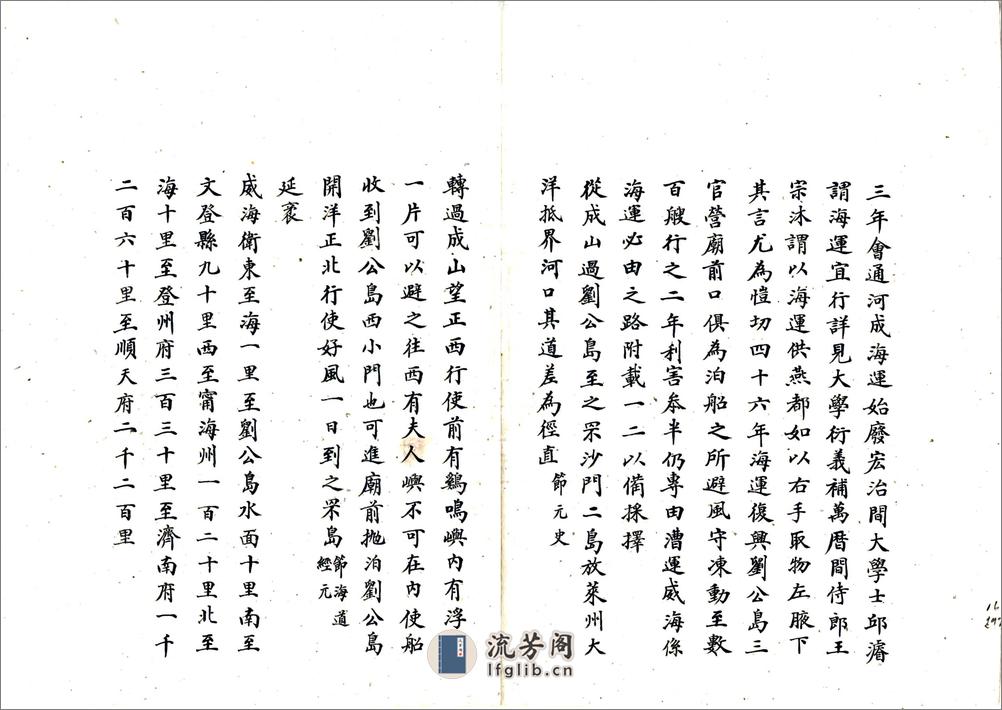 三年會通河成海運始廢宏治間大學士邱濬
謂海運宜行詳見大學衍義補萬曆間侍郎王
宗沐謂以海運供燕都如以右手取物左腋下
其言尤為愷切四十六年海運復興劉公島三
官營廟前口俱為泊船之所避風守凍動至數
百艘行之二年利害叅半仍專由漕運威海係
海運必由之路附載一二以備採擇
從成山過劉公島至之罘沙門二島放萊州大
洋抵界河口其道差為徑直 節元史
轉過成山望正西行使前有鷄鳴嶼內有浮
一片可以避之往西有夫人嶼不可在內使船
收到劉公島西小門也可進廟前抛泊劉公島
開洋正北行使好風一日到之罘島 節海道經元
延袤
威海衛東至海一里至劉公島水面十里南至
文登縣九十里西至甯海州一百二十里北至
海十里至登州府三百三十里至濟南府一千
二百六十里至順天府二千二百里
流芳阁
lfglib.cn